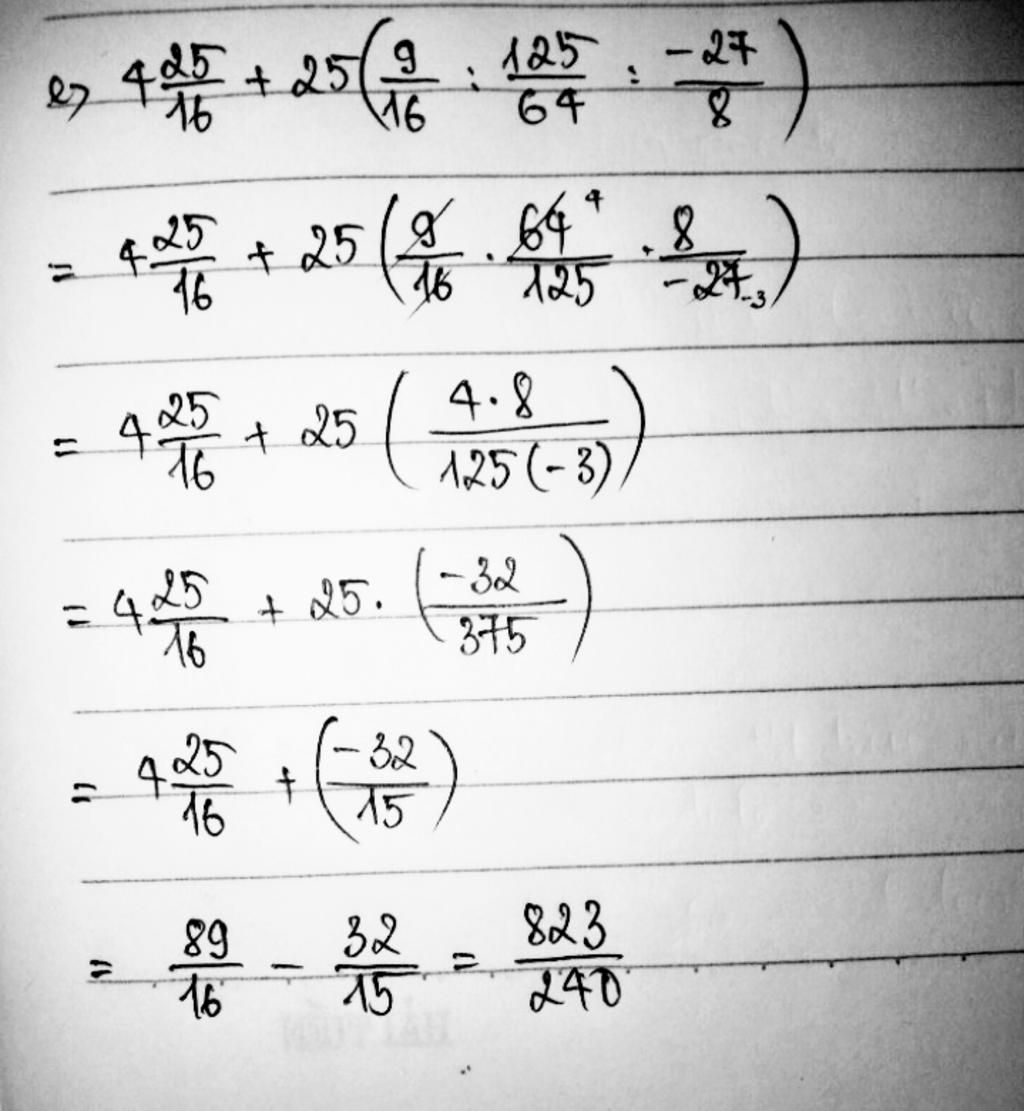 e) 4 25/16 + 25 (9/16 : 125/64 : -27/8)
= 4 25/16 + 25 (9/16 . 64 4/125 . 8/-27 -3)
= 4 25/16 + 25 (4.8/125(-3))
= 4 25/16 + 25. (-32/375)
= 4 25/16 + (-32/15)
= 89/16 - 32/15 = 823/240